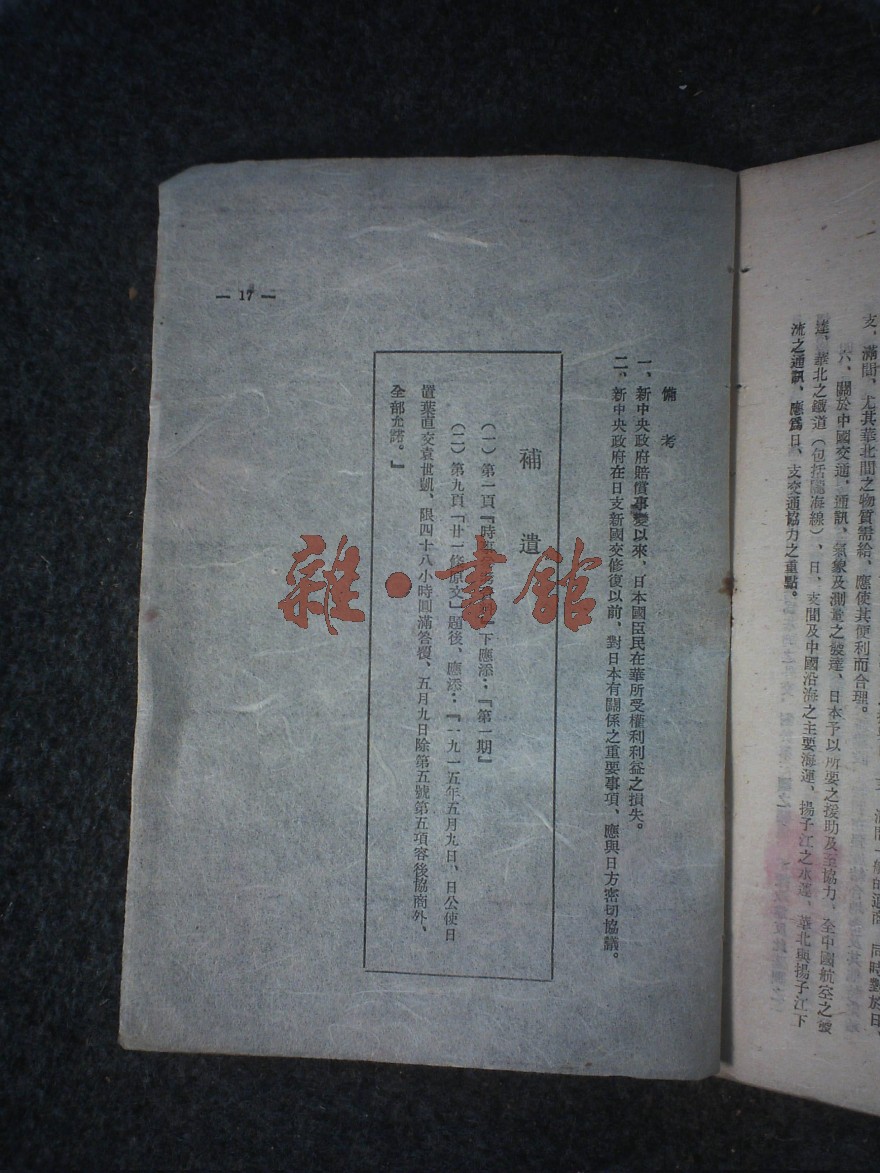 支、滿間、尤其華北間之物質需給、應使其便利而合理。
六、關於中國交通、通訊、氣象及測量之發達、日本予以所要之援助及至協力、全中國航空之發
達、華北之鐵道（包括隴海線）、日、支間及中國沿海之主要海運、揚子江之水運、華北與揚子江下
流之通訊、應爲日、支交通協力之重點。
備考
一、新中央政府賠償事變以來、日本國臣民在華所受權利利益之損失。
二、新中央政府在日支新國交修復以前、對日本有關係之重要事項、應與日方密切協議。
補遺
（一）第一頁『時 下應添：『第一期』
（二）第九頁「廿一條原文」題後、應添：『一九一五年五月九日、日公使日
置葉直交袁世凱、限四十八小時圓滿答覆、五月九日除第五號第五項容後協商外、
全部允諾。』
— 17 —
雜·書館